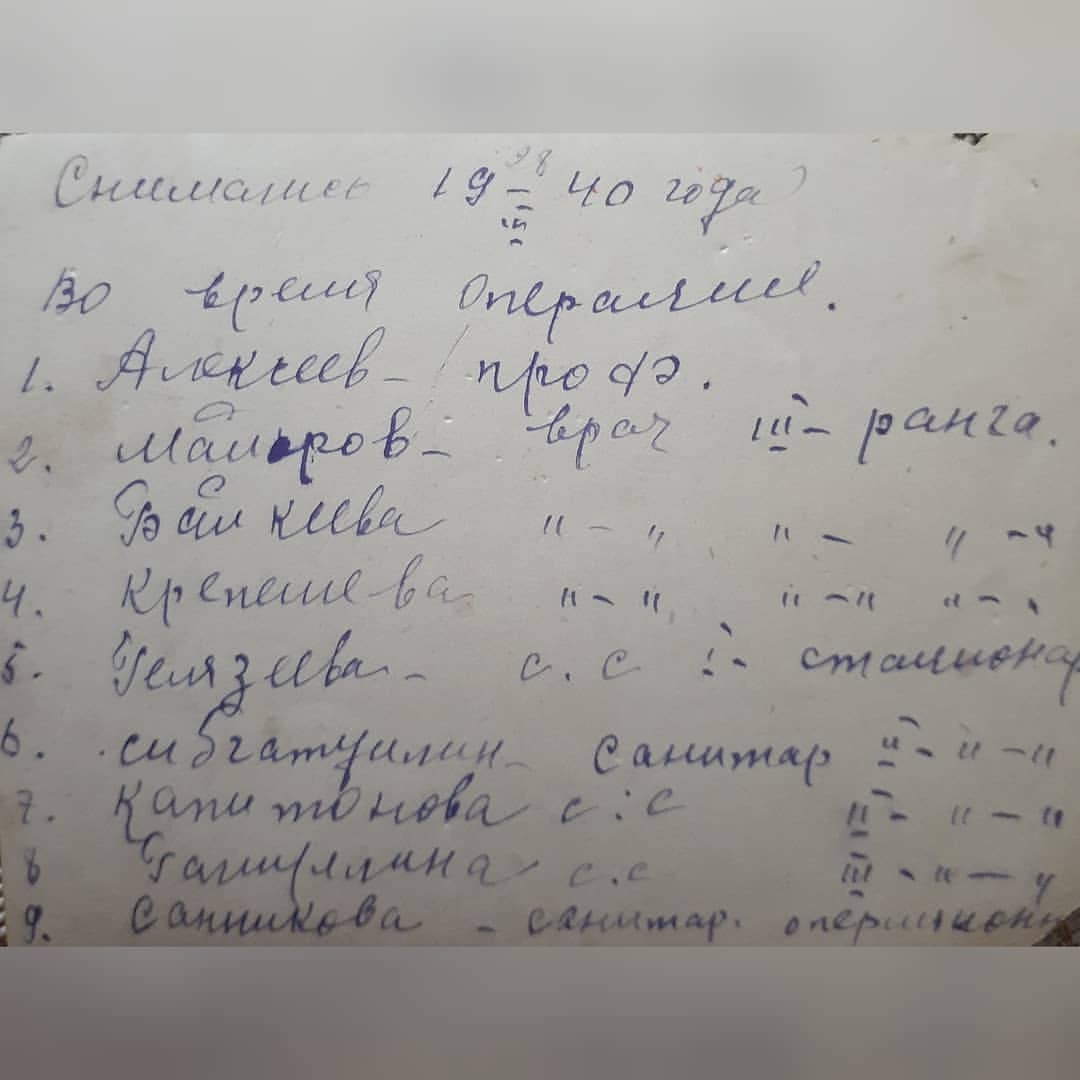 Снимались 19 28/III 40 года
Во время операции.
1. Алексеев - проф.
2. Майоров - врач III - ранга.
3. Байкеева " - " " - " - "
4. Крепешева " - " " - " " - "
5. Гелязеева - с. с I - стационар
6. Сибгатуллин - санитар II - " - "
7. Капитонова с. с II - " - "
8 Гатуллина с. с III - " - "
9. Санникова - санитар. операционн